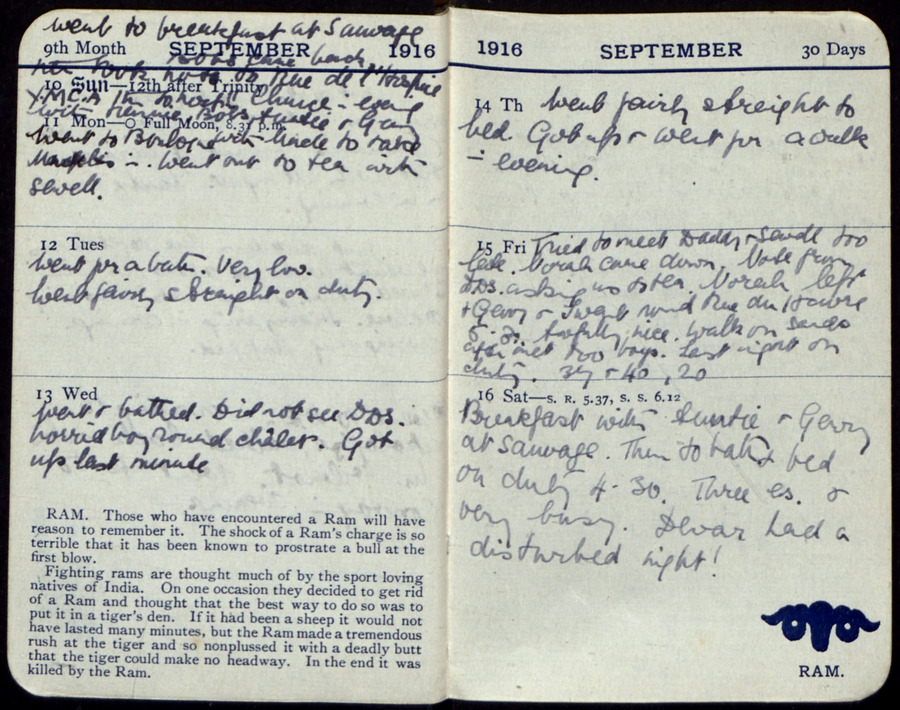 went to breakfast at Sauvage
9th Month SEPTEMBER 1916
came back
took on Rue de l'Hospice
10 Sun—12th after Trinity
Y.M.C.A. charge evening
with Auntie + Gerry
11 Mon—O Full Moon, 8.31 p.m.
went to Boulogne with Uncle to
went out to tea with
Sewell.
12 Tues
went for a bath. Very low.
Went fairly straight on duty
13 Wed
went + bathed. Did not see D.D.S.
horrid boy round châlet. Got
up last minute
RAM. Those who have encountered a Ram will have
reason to remember it. The shock of a Ram's charge is so
terrible that it has been known to prostrate a bull at the
first blow.
Fighting rams are thought much of by the sport loving
natives of India. On one occasion they decided to get rid
of a Ram and thought that the best way to do so was to
put it in a tiger's den. If it had been a sheep it would not
have lasted many minutes, but the Ram made a tremendous
rush at the tiger and so nonplussed it with a deadly butt
that the tiger could make no headway. In the end it was
killed by the Ram.
1916 SEPTEMBER 30 Days
14 Th Went fairly straight to
bed. Got up + went for a walk
– evening.
15 Fri Tried to meet Daddy + Sewell too
late. Norah came down. Note from
D.D.S. asking us to tea. Norah left
+ Gerry + I went round Rue du Havre
5.30. Awfully nice. Walk on sands
after met two boys. Last night on
duty. 39 + 40, 20
16 Sat—S. R. 5.37, S. S. 6.12
Breakfast with Auntie + Gerry
at Sauvage. Then to bath + bed
on duty 4-30. Three es. +
very busy. Devar had a
disturbed night!
RAM.